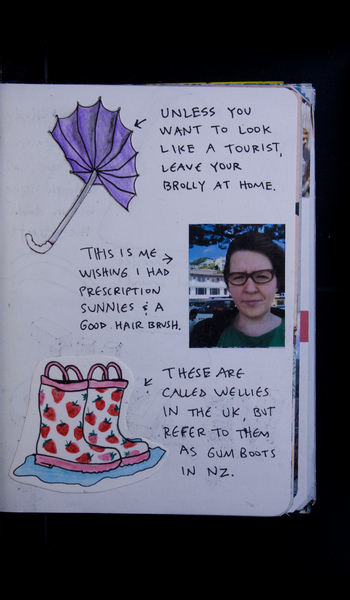 UNLESS YOU
WANT TO LOOK
LIKE A TOURIST,
LEAVE YOUR
BROLLY AT HOME.
THIS IS ME
WISHING I HAD
PRESCRIPTION
SUNNIES & A
GOOD HAIR BRUSH.
THESE ARE
CALLED WELLIES
IN THE UK, BUT
REFER TO THEM
AS GUM BOOTS
IN NZ.